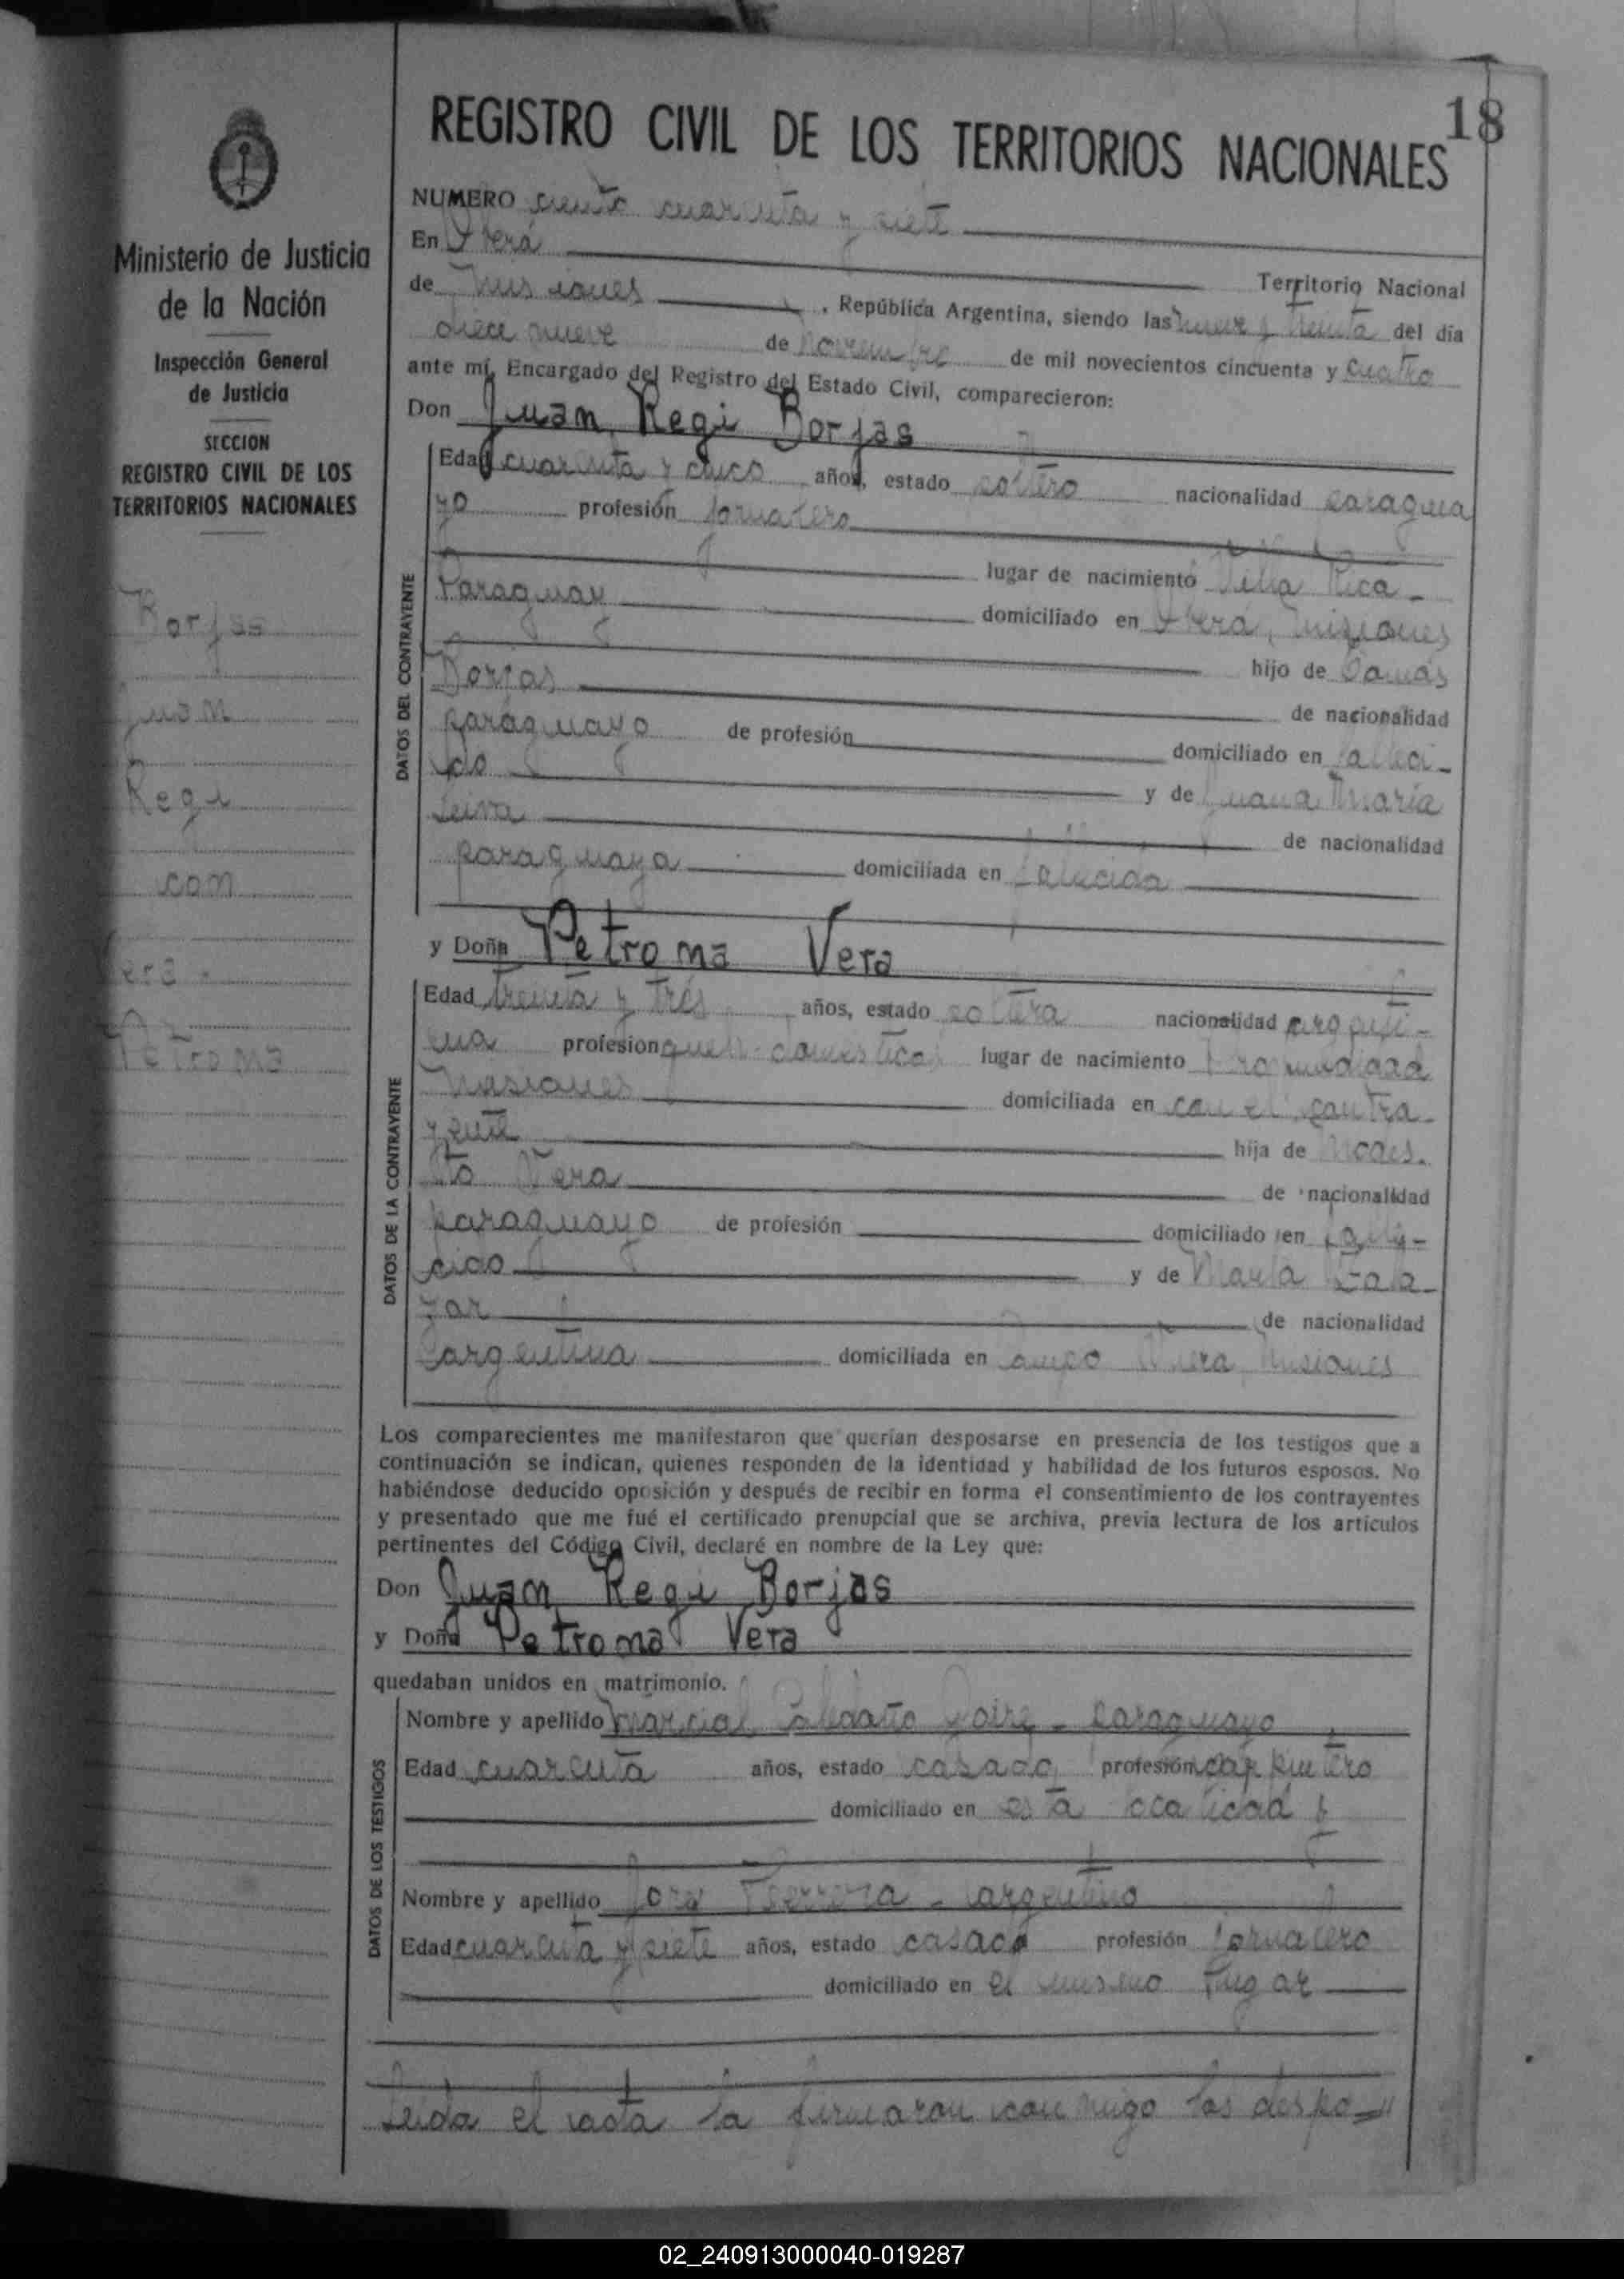 18
REGISTRO CIVIL DE LOS TERRITORIOS NACIONALES
Ministerio de Justicia
de la Nación
Inspección General
de Justicia
SECCION
REGISTRO CIVIL DE LOS
TERRITORIOS NACIONALES
Borjas
Juan
Regi
con
Vera
Petrona
NUMERO ciento cuarenta y siete
En Oberá
Territorio Nacional
de Misiones, República Argentina, siendo las nueve y treinta del día
diece nueve de noviembre de mil novecientos cincuenta y cuatro
ante mí, Encargado del Registro del Estado Civil, comparecieron:
Don Juan Regi Borjas
DATOS DEL CONTRAYENTE
Edad cuarenta y cinco años, estado soltero nacionalidad paragua
yo profesión jornalero
lugar de nacimiento Villa Rica -
Paraguay domiciliado en Oberá, Misiones
hijo de
Borjas de nacionalidad
paraguayo de profesión domiciliado en falleci-
do y de Juana Maria
Leiva de nacionalidad
paraguaya domiciliada en fallecida
y Doña Petrona Vera
DATOS DE LA CONTRAYENTE
Edad treinta y tres años, estado soltera nacionalidad argenti-
na profesión queh. domesticos lugar de nacimiento Profundidad
Misiones domiciliada en con el contra-
yente hija de Modes-
to Vera de nacionalidad
paraguayo de profesión domiciliado en falle-
cido y de Maria Sala
zar de nacionalidad
argentina domiciliada en Campo Viera Misiones
Los comparecientes me manifestaron que querían desposarse en presencia de los testigos que a
continuación se indican, quienes responden de la identidad y habilidad de los futuros esposos. No
habiéndose deducido oposición y después de recibir en forma el consentimiento de los contrayentes
y presentado que me fué el certificado prenupcial que se archiva, previa lectura de los artículos
pertinentes del Código Civil, declaré en nombre de la Ley que:
Don Juan Regi Borjas
y Doña Petrona Vera
quedaban unidos en matrimonio.
DATOS DE LOS TESTIGOS
Nombre y apellido Marcial - paraguayo
Edad cuarenta años, estado casado profesión carpintero
domiciliado en esta localidad
Nombre y apellido - argentino
Edad cuarenta y siete años, estado casado profesión jornalero
domiciliado en el mismo lugar
Leida el acta la firmaron con migo los despo="
02_240913000040-019287